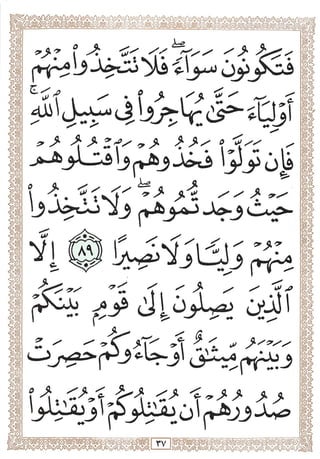 فَتَكُونُونَ سَوَآءً ۖ فَلَا تَتَّخِذُوا۟ مِنْهُمْ
أَوْلِيَآءَ حَتَّىٰ يُهَاجِرُوا۟ فِى سَبِيلِ ٱللَّهِ ۚ
فَإِن تَوَلَّوْا۟ فَخُذُوهُمْ وَٱقْتُلُوهُمْ
حَيْثُ وَجَدتُّمُوهُمْ ۖ وَلَا تَتَّخِذُوا۟
مِنْهُمْ وَلِيًّا وَلَا نَصِيرًا ٨٩ إِلَّا
ٱلَّذِينَ يَصِلُونَ إِلَىٰ قَوْمٍۭ بَيْنَكُمْ
وَبَيْنَهُم مِّيثَـٰقٌ أَوْ جَآءُوكُمْ حَصِرَتْ
صُدُورُهُمْ أَن يُقَـٰتِلُوكُمْ أَوْ يُقَـٰتِلُوا۟
٣٧